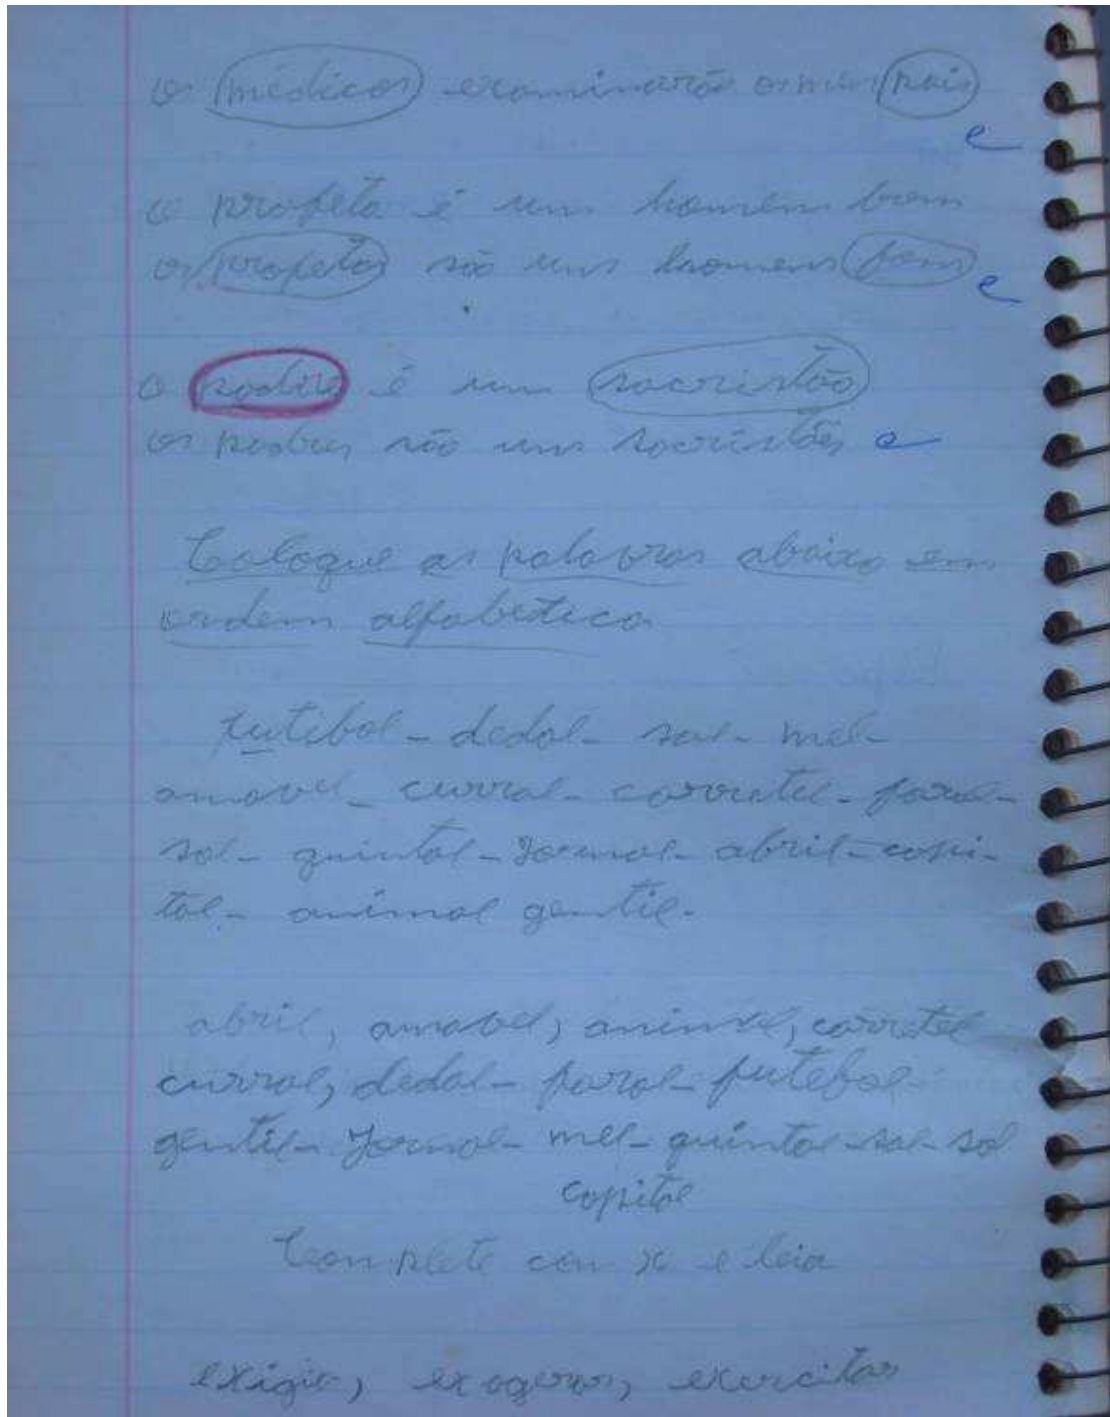 os médicos examinarão os meus pais
e
o profeta é um homem bom
os profetas são uns homens bons
e
o padre é um sacristão
os padres são uns sacristães e
Coloque as palavras abaixo em
ordem alfabetica
futebol - dedal - sal - mel -
amavel - curral - corretel - farol -
sol - quintal - Jornal - abril - capi-
tal - animal gentil -
abril, amavel, animal, corretel
curral, dedal - farol - futebol
gentil - Jornal - mel - quintal - sal - sol
capital
Complete com x e leia
exigir, exagerar, exercitar